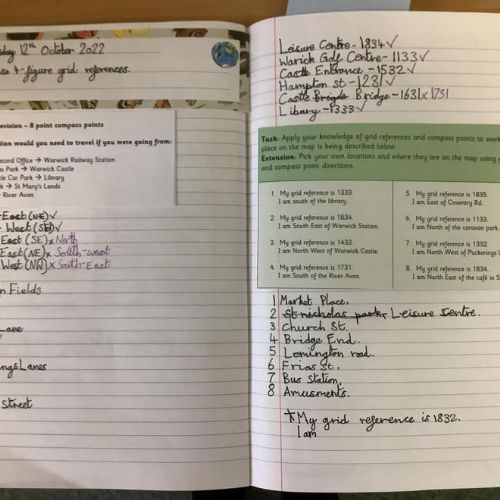 day 12th October 2022
4-figure grid references.
evision - 8 point compass points
tion would you need to travel if you were going from:
ecord Office → Warwick Railway Station
s Park → Warwick Castle
le Car Park → Library
k → St Mary's Lands
River Avon
East (NE) ✓
West (SW) ✓
East (SE) x North
East (NE) x South-west
West (NW) x South-East
n Fields
Lane
ngs Lanes
Street
Leisure Centre - 1834 ✓
Warick Golf Centre - 1133 ✓
Castle Entrance - 1532 ✓
Hampton st - 1231 ✓
Castle Bridge - 1631 x 1731
Libary - 1333 ✓
Task: Apply your knowledge of grid references and compass points to work
place on the map is being described below.
Extension: Pick your own locations and where they are on the map using g
and compass point directions.
1. My grid reference is 1333.
I am south of the library.
2. My grid reference is 1834.
I am South East of Warwick Station.
3. My grid reference is 1433.
I am North West of Warwick Castle.
4. My grid reference is 1731.
I am South of the River Avon.
5. My grid reference is 1835
I am East of Coventry Rd.
6. My grid reference is 1133.
I am North of the caravan park.
7. My grid reference is 1332.
I am North West of Pockerings
8. My grid reference is 1834.
I am North East of the café in S
1 Market Place.
2 St nicholas park, Leisure centre.
3 Church St.
4 Bridge End.
5 Lemington road.
6 Frias St.
7 Bus Station.
8 Amusments.
My grid reference is 1832.
I am